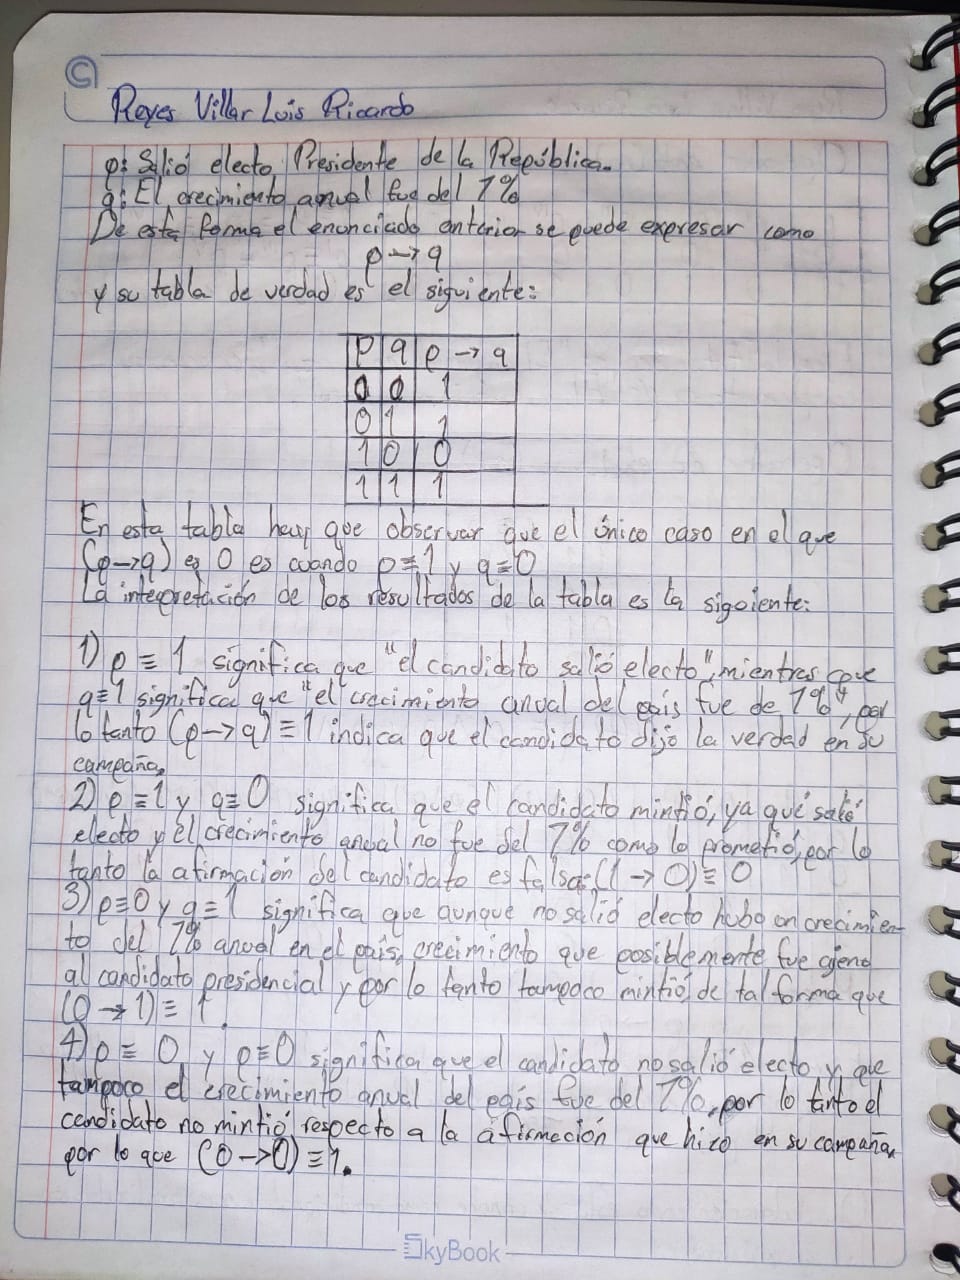 Reyes Villar Luis Ricardo
p: Salió electo Presidente de la República.
q: El crecimiento anual fue del 7%
De esta forma el enunciado anterior se puede expresar como
p → q
y su tabla de verdad es el siguiente:
p q p → q
0 0 1
0 1 1
1 0 0
1 1 1
En esta tabla hay que observar que el único caso en el que
(p→q) es 0 es cuando p≡1 y q≡0
La interpretación de los resultados de la tabla es la siguiente:
1) p ≡ 1 significa que "el candidato salió electo", mientras que
q≡1 significa que "el crecimiento anual del país fue de 7%", por
lo tanto (p→q) ≡ 1 indica que el candidato dijo la verdad en su
campaña.
2) p ≡ 1 y q≡0 significa que el candidato mintió, ya qué salió
electo y el crecimiento anual no fue del 7% como lo prometió, por lo
tanto la afirmación del candidato es falsa: (1 → 0) ≡ 0
3) p≡0 y q≡1 significa que aunque no salió electo hubo un crecimien-
to del 7% anual en el país, crecimiento que posiblemente fue ajeno
al candidato presidencial y por lo tanto tampoco mintió, de tal forma que
(0 → 1) ≡ 1.
4) p ≡ 0 y p≡0 significa que el candidato no salió electo y que
tampoco el crecimiento anual del país fue del 7%, por lo tanto el
candidato no mintió respecto a la afirmación que hizo en su campaña,
por lo que (0 →0) ≡1.
SkyBook